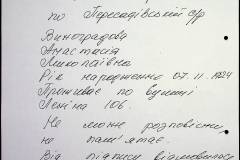 по Пересадівській с/р
Виноградова
Анастасія
Миколаївна
Рік народження 07.11.1924
Проживає по вулиці
Леніна 106.
Не може розповісти,
не пам'ятає.
Від підпису відмовилась